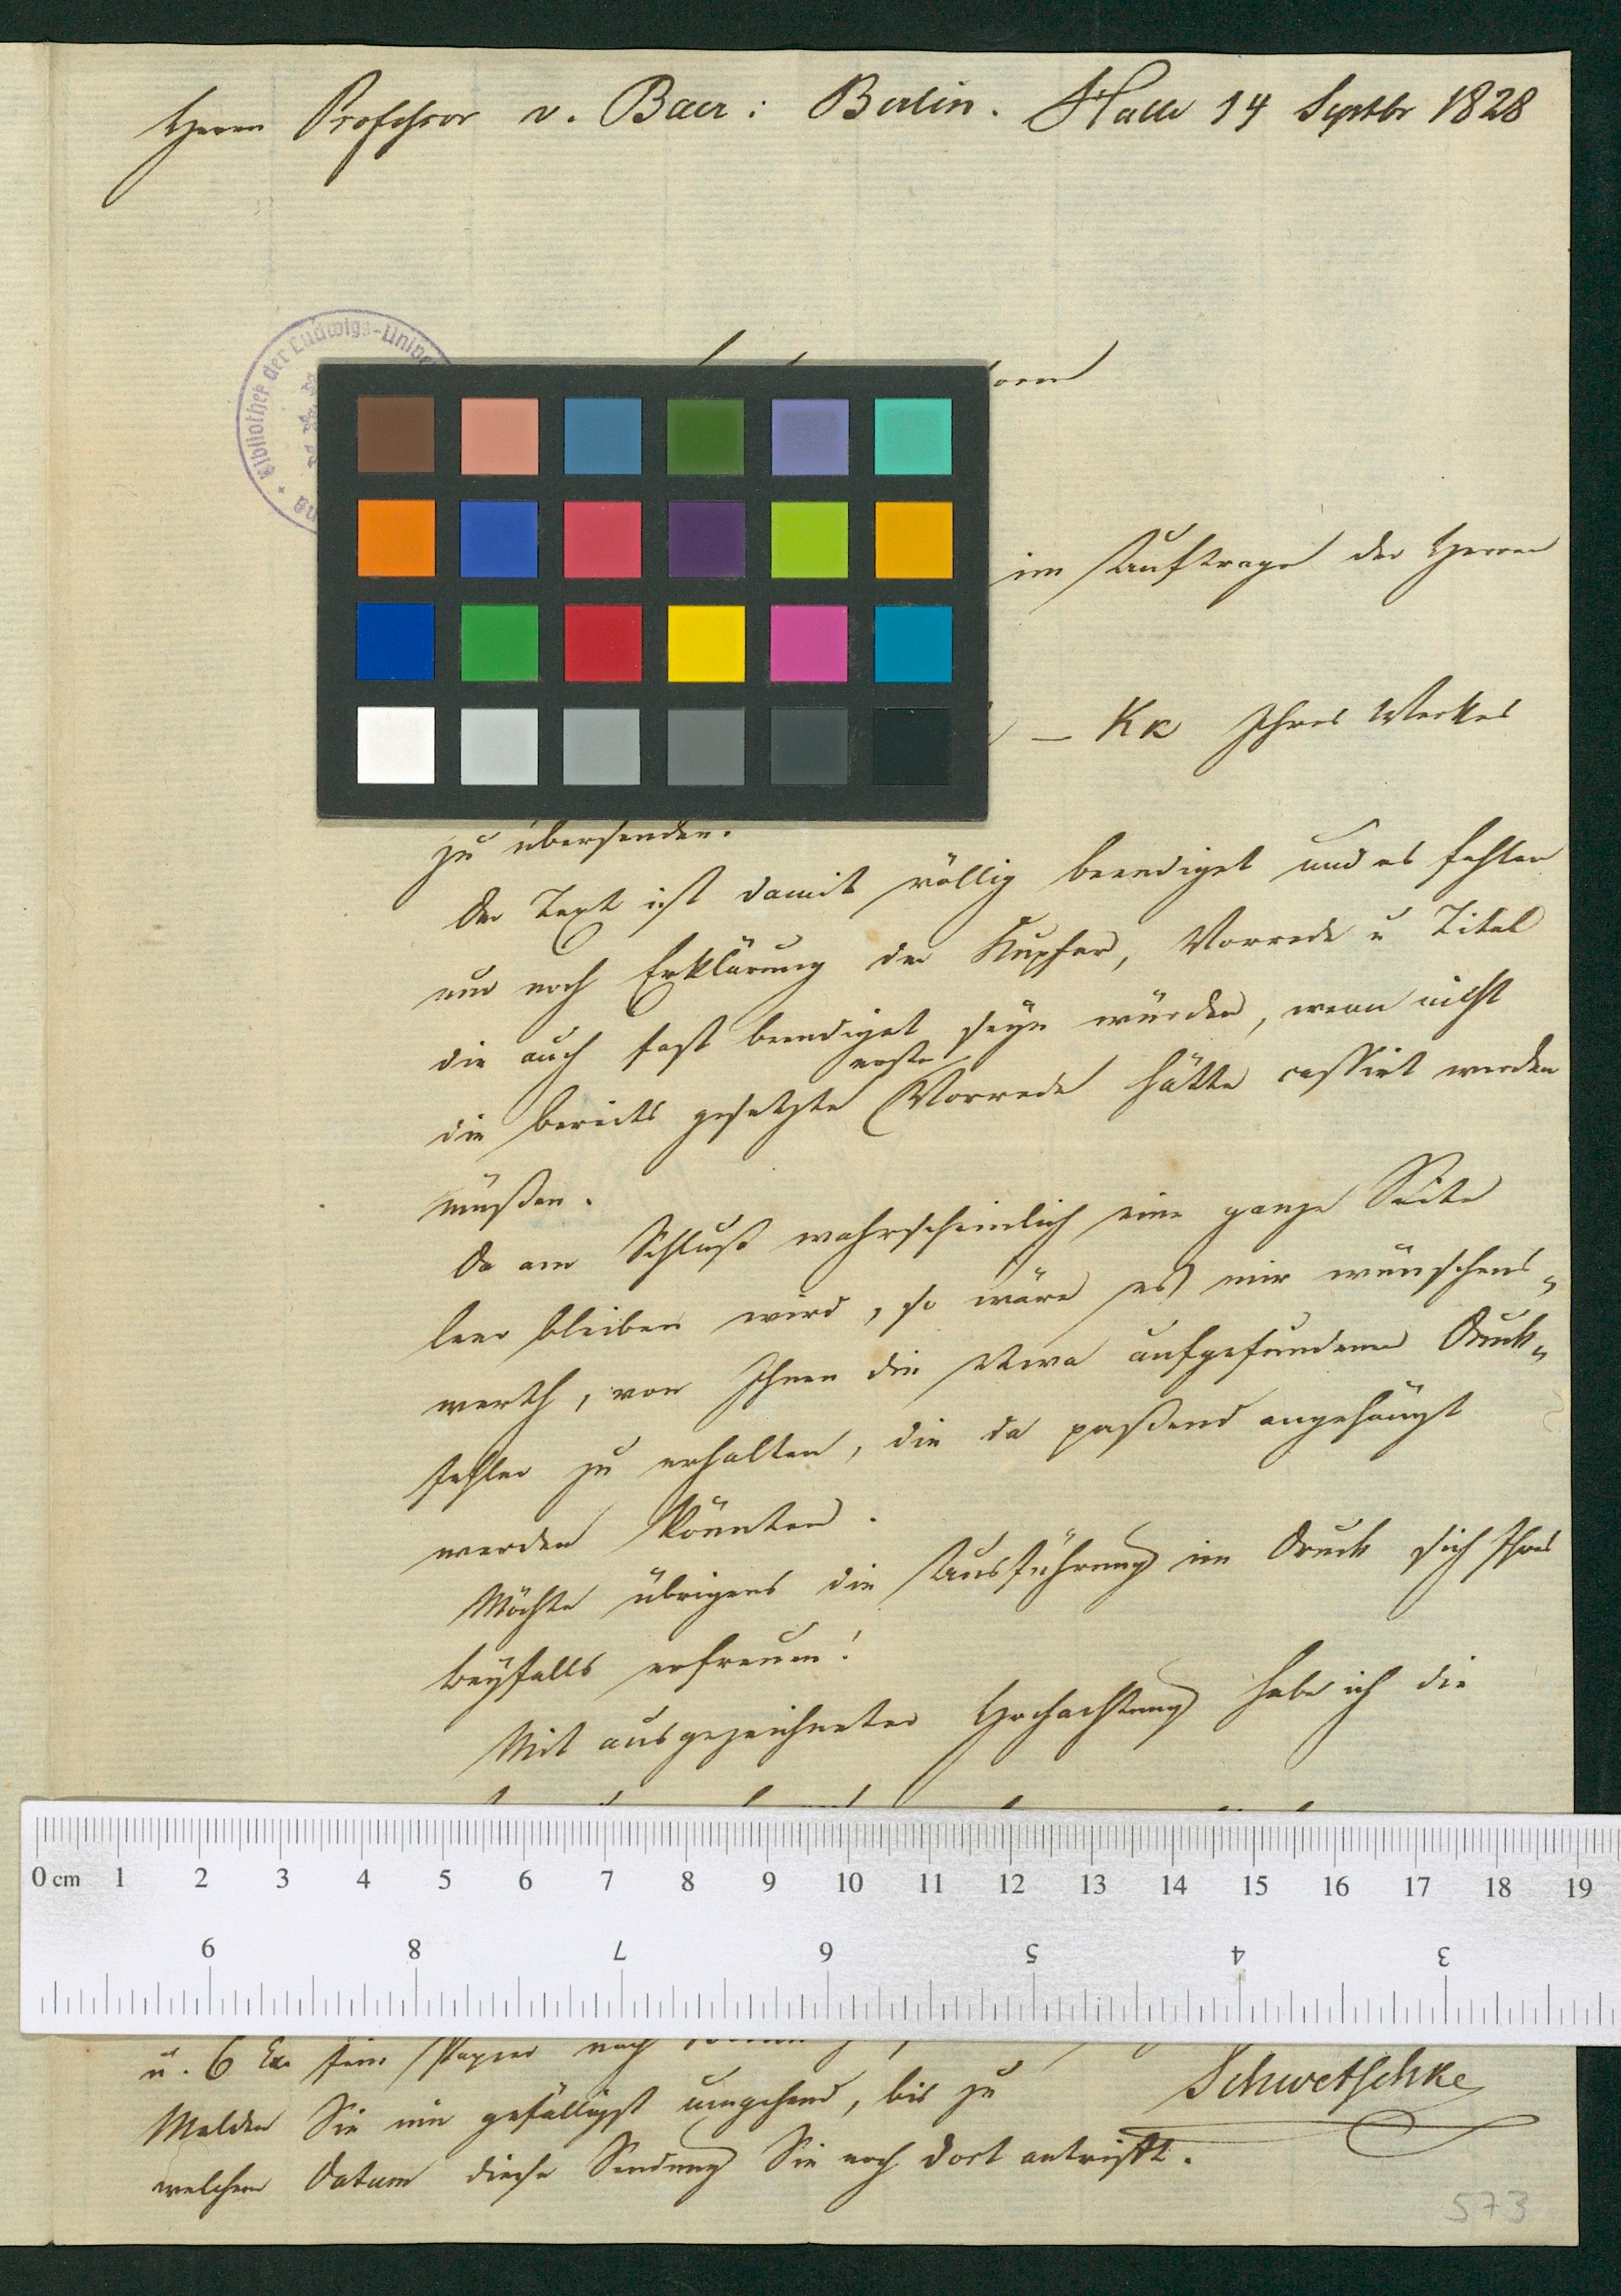 Herrn Professor v. Baer: Berlin. Halle 14 Septbr 1828
Bibliothek der Ludwigs-Unive
im Auftrage der Herren
– Kk Ihres Werkes
zu übersenden.
Der Text ist damit völlig beendiget und es fehlen
nur noch Erklärung der Kupfer, Vorrede u Titel
die auch fast beendiget seyn würden, wenn nicht
erste
die bereits gesetzte Vorrede hätte cassirt werden
müßen.
Da am Schluß wahrscheinlich eine ganze Seite
leer bleiben wird, so wäre es mir wünschens„
werth, von Ihnen die etwa aufgefundenen Druck„
fehler zu erhalten, die da paßend angehängt
werden könnten.
Möchte übrigens die Ausführung im Druck sich Ihres
Beyfalls erfreuen!
Mit ausgezeichneter Hochachtung habe ich die
0 cm 1 2 3 4 5 6 7 8 9 10 11 12 13 14 15 16 17 18 19
9 8 7 6 5 4 3
u. 6 Ex. fein Papier nach
Schwetschke
Melden Sie mir gefälligst umgehend, bis zu
welchem Datum diese Sendung Sie noch dort antrifft.
573